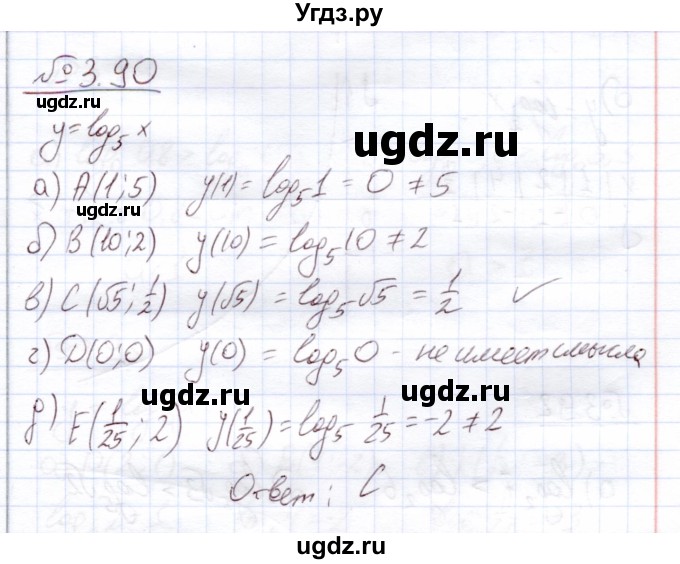 Угдз.ру
№ 3.90
ugdz.ru
y = log₅ x
ugdz.ru
а) A(1; 5) y(1) = log₅1 = 0 ≠ 5
ugdz.ru
б) B(10; 2) y(10) = log₅10 ≠ 2
в) C(√5; 1/2) y(√5) = log₅√5 = 1/2 ✓
г) D(0; 0) y(0) = log₅0 - не имеет смысла
ugdz.ru ugdz.ru
д) E(1/25; 2) y(1/25) = log₅ 1/25 = -2 ≠ 2
Ответ: C
ugdz.ru
ugdz.ru